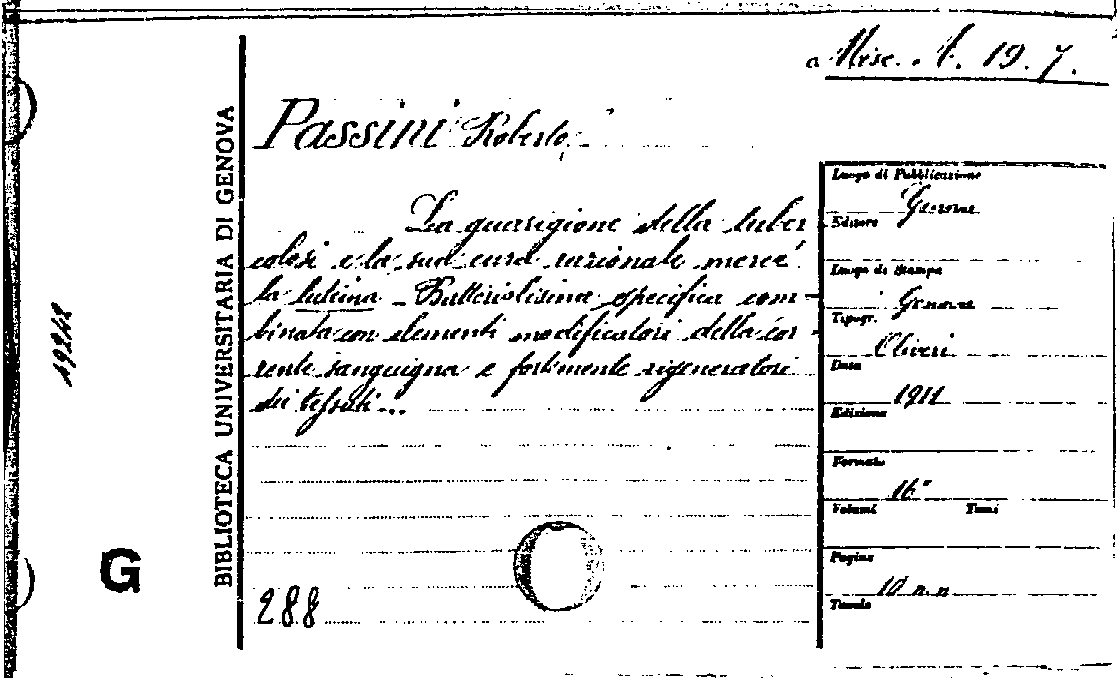 a Misc. A. 19. 7.
Passini Roberto
La guarigione della tuber
colosi e la sua cura razionale mercé
la tubina - Batteriolisina specifica com-
binata con elementi modificatori della cor-
rente sanguigna e fortemente rigeneratori
dei tessuti...
288
Luogo di Pubblicazione
Genova
Editore
Luogo di Stampa
Genova
Tipogr.
Oliveri
Data
1911
Edizione
Formato
16°
Volumi Tomi
Pagine
10 n. n.
Tavole
BIBLIOTECA UNIVERSITARIA DI GENOVA
G